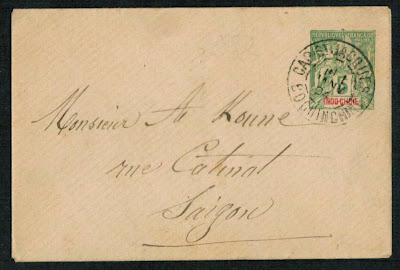 RÉPUBLIQUE FRANÇAISE
CAP ST JACQUES
INDO-CHINE
COCHINCHINE
Monsieur
rue Catinat
Saigon